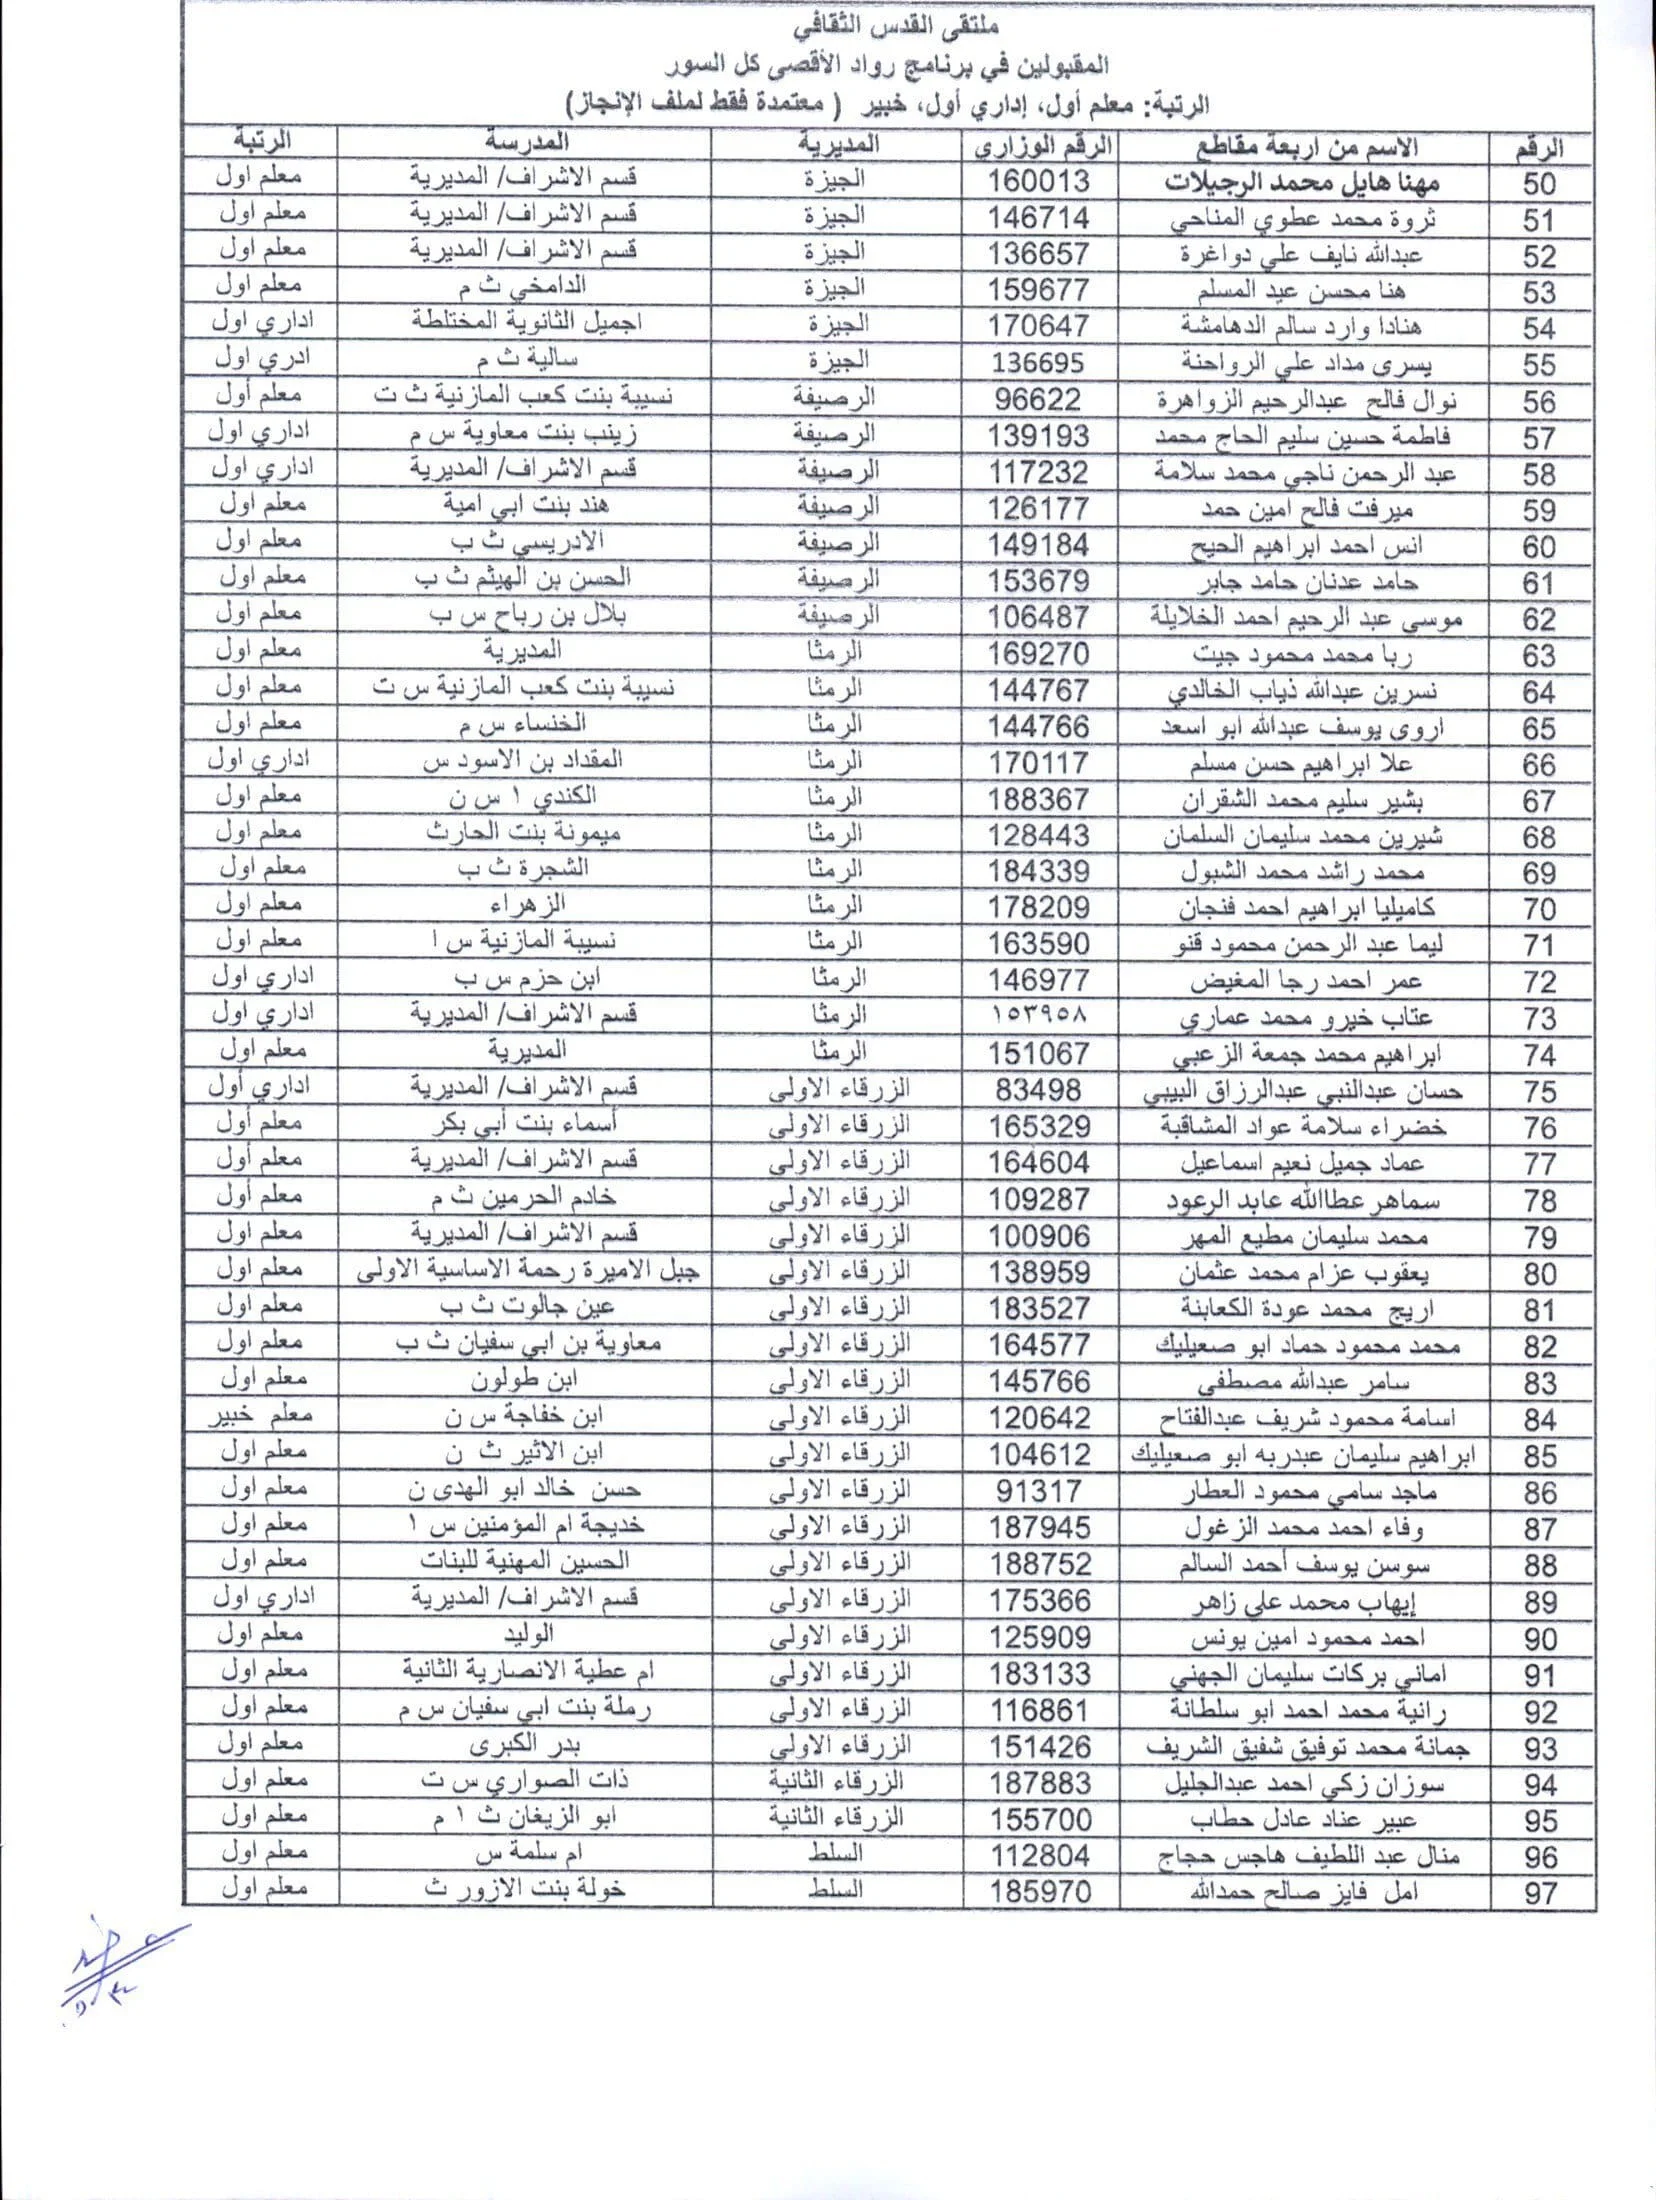 ملتقى القدس الثقافي
المقبولين في برنامج رواد الأقصى كل السور
الرتبة: معلم أول، إداري أول، خبير ( معتمدة فقط لملف الإنجاز)
الرقم الاسم من اربعة مقاطع الرقم الوزاري المديرية المدرسة الرتبة
50 مهنا هايل محمد الرجيلات 160013 الجيزة قسم الاشراف/ المديرية معلم اول
51 ثروة محمد عطوي المناحي 146714 الجيزة قسم الاشراف/ المديرية معلم اول
52 عبدالله نايف علي دواغرة 136657 الجيزة قسم الاشراف/ المديرية معلم اول
53 هنا محسن عيد المسلم 159677 الجيزة الدامخي ث م معلم اول
54 هنادا وارد سالم الدهامشة 170647 الجيزة اجميل الثانوية المختلطة اداري اول
55 يسرى مداد علي الرواحنة 136695 الجيزة سالية ث م ادري اول
56 نوال فالح عبدالرحيم الزواهرة 96622 الرصيفة نسيبة بنت كعب المازنية ث ت معلم أول
57 فاطمة حسين سليم الحاج محمد 139193 الرصيفة زينب بنت معاوية س م اداري اول
58 عبد الرحمن ناجي محمد سلامة 117232 الرصيفة قسم الاشراف/ المديرية اداري اول
59 ميرفت فالح امين حمد 126177 الرصيفة هند بنت ابي امية معلم اول
60 انس احمد ابراهيم الحيح 149184 الرصيفة الادريسي ث ب معلم اول
61 حامد عدنان حامد جابر 153679 الرصيفة الحسن بن الهيثم ث ب معلم اول
62 موسى عبد الرحيم احمد الخلايلة 106487 الرصيفة بلال بن رباح س ب معلم اول
63 ربا محمد محمود جيت 169270 الرمثا المديرية معلم اول
64 نسرين عبدالله ذياب الخالدي 144767 الرمثا نسيبة بنت كعب المازنية س ت معلم اول
65 اروى يوسف عبدالله ابو اسعد 144766 الرمثا الخنساء س م معلم اول
66 علا ابراهيم حسن مسلم 170117 الرمثا المقداد بن الاسود س اداري اول
67 بشير سليم محمد الشقران 188367 الرمثا الكندي ١ س ن معلم اول
68 شيرين محمد سليمان السلمان 128443 الرمثا ميمونة بنت الحارث معلم اول
69 محمد راشد محمد الشبول 184339 الرمثا الشجرة ث ب معلم اول
70 كاميليا ابراهيم احمد فنجان 178209 الرمثا الزهراء معلم اول
71 ليما عبد الرحمن محمود قنو 163590 الرمثا نسيبة المازنية س ا معلم اول
72 عمر احمد رجا المغيض 146977 الرمثا ابن حزم س ب اداري اول
73 عتاب خيرو محمد عماري ١٥٣٩٥٨ الرمثا قسم الاشراف/ المديرية اداري اول
74 ابراهيم محمد جمعة الزعبي 151067 الرمثا المديرية معلم اول
75 حسان عبدالنبي عبدالرزاق البيبي 83498 الزرقاء الاولى قسم الاشراف/ المديرية اداري أول
76 خضراء سلامة عواد المشاقبة 165329 الزرقاء الاولى أسماء بنت أبي بكر معلم أول
77 عماد جميل نعيم اسماعيل 164604 الزرقاء الاولى قسم الاشراف/ المديرية معلم أول
78 سماهر عطاالله عابد الرعود 109287 الزرقاء الاولى خادم الحرمين ث م معلم أول
79 محمد سليمان مطيع المهر 100906 الزرقاء الاولى قسم الاشراف/ المديرية معلم اول
80 يعقوب عزام محمد عثمان 138959 الزرقاء الاولى جبل الاميرة رحمة الاساسية الاولى معلم اول
81 اريج محمد عودة الكعابنة 183527 الزرقاء الاولى عين جالوت ث ب معلم اول
82 محمد محمود حماد ابو صعيليك 164577 الزرقاء الاولى معاوية بن ابي سفيان ث ب معلم اول
83 سامر عبدالله مصطفى 145766 الزرقاء الاولى ابن طولون معلم اول
84 اسامة محمود شريف عبدالفتاح 120642 الزرقاء الاولى ابن خفاجة س ن معلم خبير
85 ابراهيم سليمان عبدربه ابو صعيليك 104612 الزرقاء الاولى ابن الاثير ث ن معلم اول
86 ماجد سامي محمود العطار 91317 الزرقاء الاولى حسن خالد ابو الهدى ن معلم اول
87 وفاء احمد محمد الزغول 187945 الزرقاء الاولى خديجة ام المؤمنين س ١ معلم اول
88 سوسن يوسف أحمد السالم 188752 الزرقاء الاولى الحسين المهنية للبنات معلم اول
89 إيهاب محمد علي زاهر 175366 الزرقاء الاولى قسم الاشراف/ المديرية اداري اول
90 احمد محمود امين يونس 125909 الزرقاء الاولى الوليد معلم اول
91 اماني بركات سليمان الجهني 183133 الزرقاء الاولى ام عطية الانصارية الثانية معلم اول
92 رانية محمد احمد ابو سلطانة 116861 الزرقاء الاولى رملة بنت ابي سفيان س م معلم اول
93 جمانة محمد توفيق شفيق الشريف 151426 الزرقاء الاولى بدر الكبرى معلم اول
94 سوزان زكي احمد عبدالجليل 187883 الزرقاء الثانية ذات الصواري س ت معلم اول
95 عبير عناد عادل حطاب 155700 الزرقاء الثانية ابو الزيغان ث ١ م معلم اول
96 منال عبد اللطيف هاجس حجاج 112804 السلط ام سلمة س معلم اول
97 امل فايز صالح حمدالله 185970 السلط خولة بنت الازور ث معلم اول